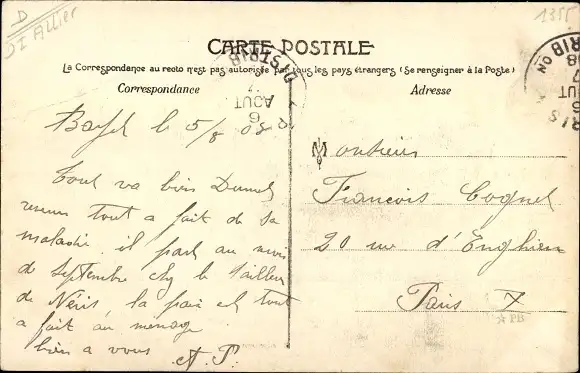 D
DI Allier
1355
CARTE POSTALE
La Correspondance au recto n'est pas autorisée par tous les pays étrangers (Se renseigner à la Poste)
Correspondance
Adresse
6
AOUT
Bayet le 5/8 08
Monsieur
François Cognet
20 rue d'Enghien
Paris X
Tout va bien Dumel
revenu tout a fait de sa
maladie il part au mois
de Septembre chez le tailleur
de Néris, la paix est tout
a fait au menage
bien a vous A. P.
PB